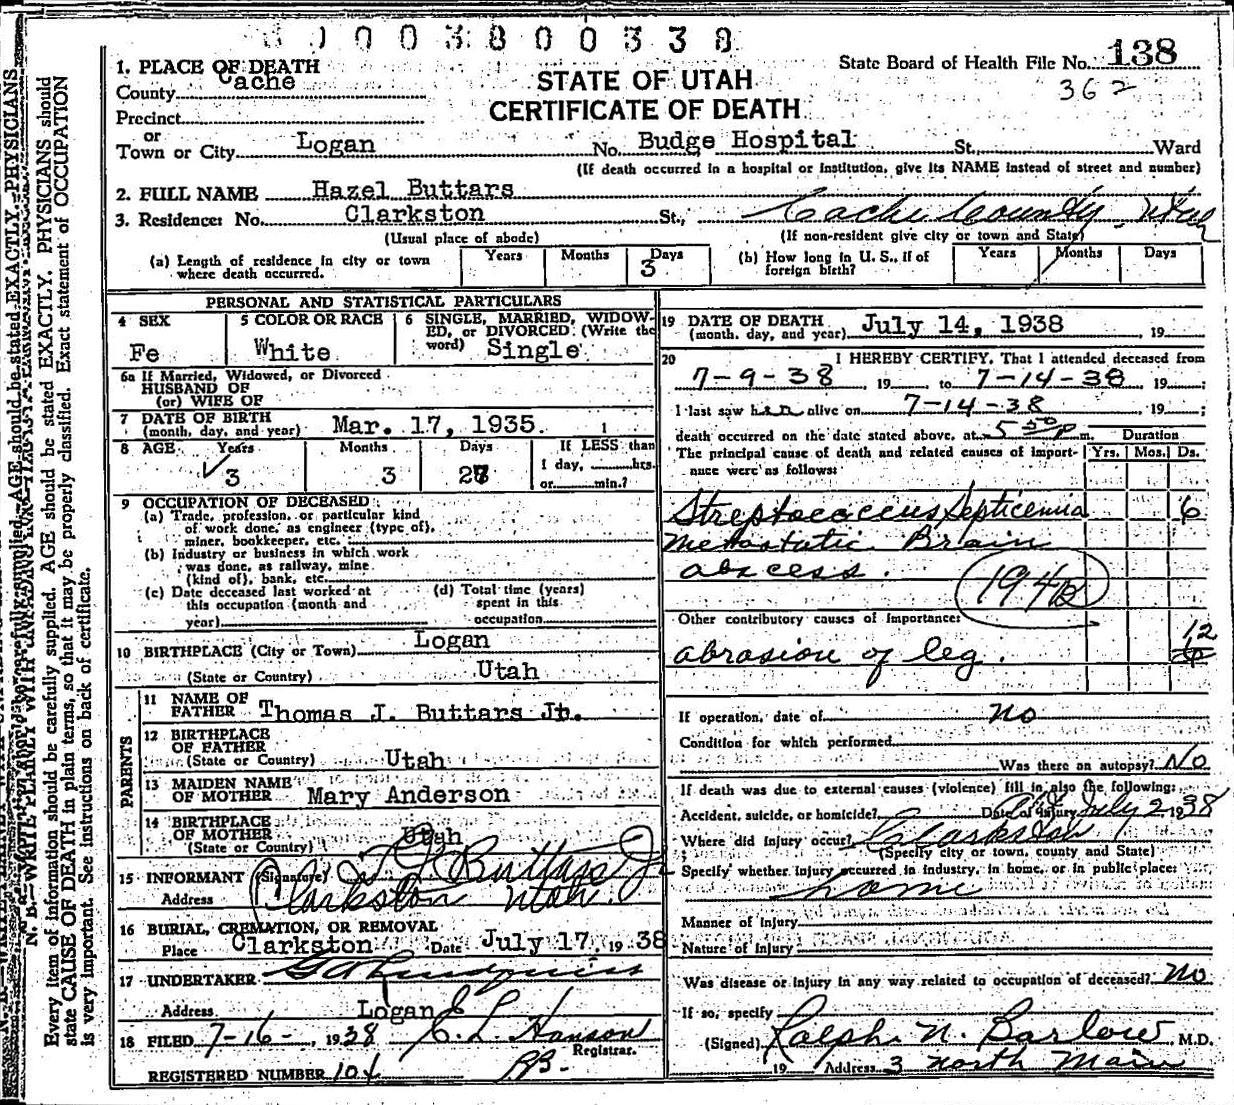 0003800338
1. PLACE OF DEATH
County Cache
Precinct
or
Town or City Logan No. Budge Hospital St. Ward
(If death occurred in a hospital or institution, give its NAME instead of street and number)
STATE OF UTAH
CERTIFICATE OF DEATH
State Board of Health File No. 138
362
2. FULL NAME Hazel Buttars
3. Residence: No. Clarkston St., Cache County, Utah
(Usual place of abode) (If non-resident give city or town and State)
(a) Length of residence in city or town where death occurred. Years Months Days 3
(b) How long in U. S., if of foreign birth? Years Months Days
PERSONAL AND STATISTICAL PARTICULARS
4 SEX Fe
5 COLOR OR RACE White
6 SINGLE, MARRIED, WIDOWED, or DIVORCED (Write the word) Single
6a If Married, Widowed, or Divorced
HUSBAND OF
(or) WIFE OF
7 DATE OF BIRTH
(month, day, and year) Mar. 17, 1935.
8 AGE Years 3 Months 3 Days 27 If LESS than
1 day, hrs.
or min.?
9 OCCUPATION OF DECEASED
(a) Trade, profession, or particular kind
of work done, as engineer (type of),
miner, bookkeeper, etc.
(b) Industry or business in which work
was done, as railway, mine
(kind of), bank, etc.
(c) Date deceased last worked at
this occupation (month and
year)
(d) Total time (years)
spent in this
occupation
10 BIRTHPLACE (City or Town) Logan
(State or Country) Utah
PARENTS
11 NAME OF
FATHER Thomas J. Buttars Jr.
12 BIRTHPLACE
OF FATHER
(State or Country) Utah
13 MAIDEN NAME
OF MOTHER Mary Anderson
14 BIRTHPLACE
OF MOTHER
(State or Country) Utah
15 INFORMANT (Signature) T J Buttars Jr
Address Clarkston Utah.
16 BURIAL, CREMATION, OR REMOVAL
Place Clarkston Date July 17, 1938
17 UNDERTAKER
Address Logan
18 FILED 7-16-, 1938 C. L. Hanson
Registrar.
REGISTERED NUMBER 104
19 DATE OF DEATH
(month, day, and year) July 14, 1938 19
20 I HEREBY CERTIFY, That I attended deceased from
7-9-38 19 to 7-14-38, 19 ;
I last saw her alive on 7-14-38 19 ;
death occurred on the date stated above, at 5 50 p m.
Duration
The principal cause of death and related causes of importance were as follows: Yrs. Mos. Ds.
Streptococcus Septicemia 6
Metastatic Brain
abscess.
Other contributory causes of importance:
12
abrasion of leg.
If operation, date of no
Condition for which performed
Was there an autopsy? No
If death was due to external causes (violence) fill in also the following:
Accident, suicide, or homicide? Date of injury July 2 1938
Where did injury occur? Clarkston
(Specify city or town, county and State)
Specify whether injury occurred in industry, in home, or in public place:
home
Manner of Injury
Nature of Injury
Was disease or injury in any way related to occupation of deceased? no
If so, specify
(Signed) Ralph N. Barlow, M.D.
19 Address 3 North Main
Every item of information should be carefully supplied. AGE should be stated EXACTLY. PHYSICIANS should
state CAUSE OF DEATH in plain terms, so that it may be properly classified. Exact statement of OCCUPATION
is very important. See instructions on back of certificate.